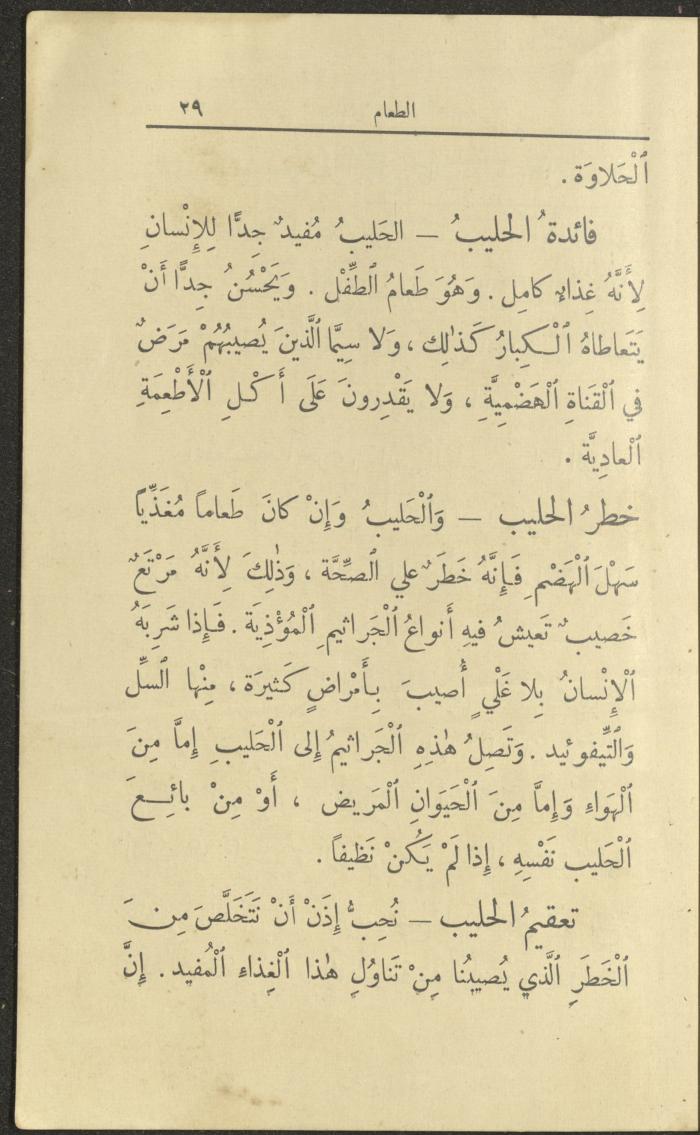 الطعام ٢٩
ٱلْحَلاوَة .
فائدةُ الحليبُ — الحَليبُ مُفيدٌ جِدًّا لِلإِنْسانِ
لِأَنَّهُ غِذاءٌ كامِل . وَهُوَ طَعامُ ٱلطِّفْل . وَيَحْسُنُ جِدًّا أَنْ
يَتَعاطاهُ ٱلْكِبارُ كَذٰلِك ، وَلا سِيَّما ٱلَّذينَ يُصيبُهُمْ مَرَضٌ
في ٱلْقَناةِ ٱلْهَضْمِيَّةِ ، وَلا يَقْدِرونَ عَلَى أَكْلِ ٱلْأَطْعِمَةِ
ٱلْعادِيَّة .
خطرُ الحليب — وَٱلْحَليبُ وَإِنْ كانَ طَعاماً مُغَذِّياً
سَهْلَ ٱلْهَضْمِ فَإِنَّهُ خَطَرٌ علي ٱلصِّحَّة ، وَذٰلِكَ لِأَنَّهُ مَرْتَعٌ
خَصيبٌ تَعيشُ فيهِ أَنواعُ ٱلْجَراثيمِ ٱلْمُؤْذِيَة . فَإِذا شَرِبَهُ
ٱلْإِنْسانُ بِلا غَلْيٍ أُصيبَ بِأَمْراضٍ كَثيرَة ، مِنْها ٱلسِّل
وَٱلتّيفوئيد . وَتَصِلُ هٰذِهِ ٱلْجَراثيمُ إِلى ٱلْحَليبِ إِمّا مِنَ
ٱلْهَواءِ وَإِمّا مِنَ ٱلْحَيَوانِ ٱلْمَريض ، أَوْ مِنْ بائِعِ
ٱلْحَليب نَفْسِهِ ، إِذا لَمْ يَكُنْ نَظيفاً .
تعقيمُ الحليب — نُحِبُّ إِذَنْ أَنْ نَتَخَلَّصَ مِنَ
ٱلْخَطَرِ ٱلَّذي يُصيبُنا مِنْ تَناوُلِ هٰذا ٱلْغِذاءِ ٱلْمُفيد . إِنَّ